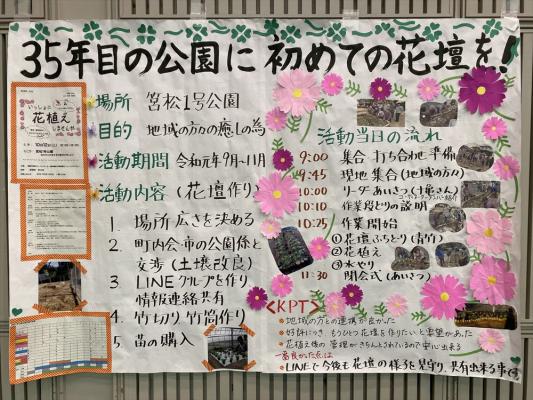 35年目の公園に初めての花壇を!
場所 筥松1号公園
目的 地域の方々の癒しの為
活動期間 令和元年9月~11月
活動内容(花壇作り)
1. 場所 広さを決める
2. 町内会・市の公園係と
交渉(土壌改良)
3. LINEグループを作り
情報連絡共有
4. 竹切り 竹筒作り
5. 苗の購入
いっしょに
花植え
しませんか
活動当日の流れ
9:00 集合 打ち合わせ 準備
9:45 現地集合(地域の方々)
10:00 リーダーあいさつ
10:10 作業段どりの説明
10:25 作業開始
①花壇ふちどり(青竹)
②花植え
③水やり
11:30 閉会式(あいさつ)
<KPT>
・地域の方との連携が良かった
・好評につき、もうひとつ花壇を作りたいと要望があった
・花植え後の管理がきちんとされているので安心出来る
一番良かった点は
・LINEで今後も花壇の様子を見守り、共有出来る事